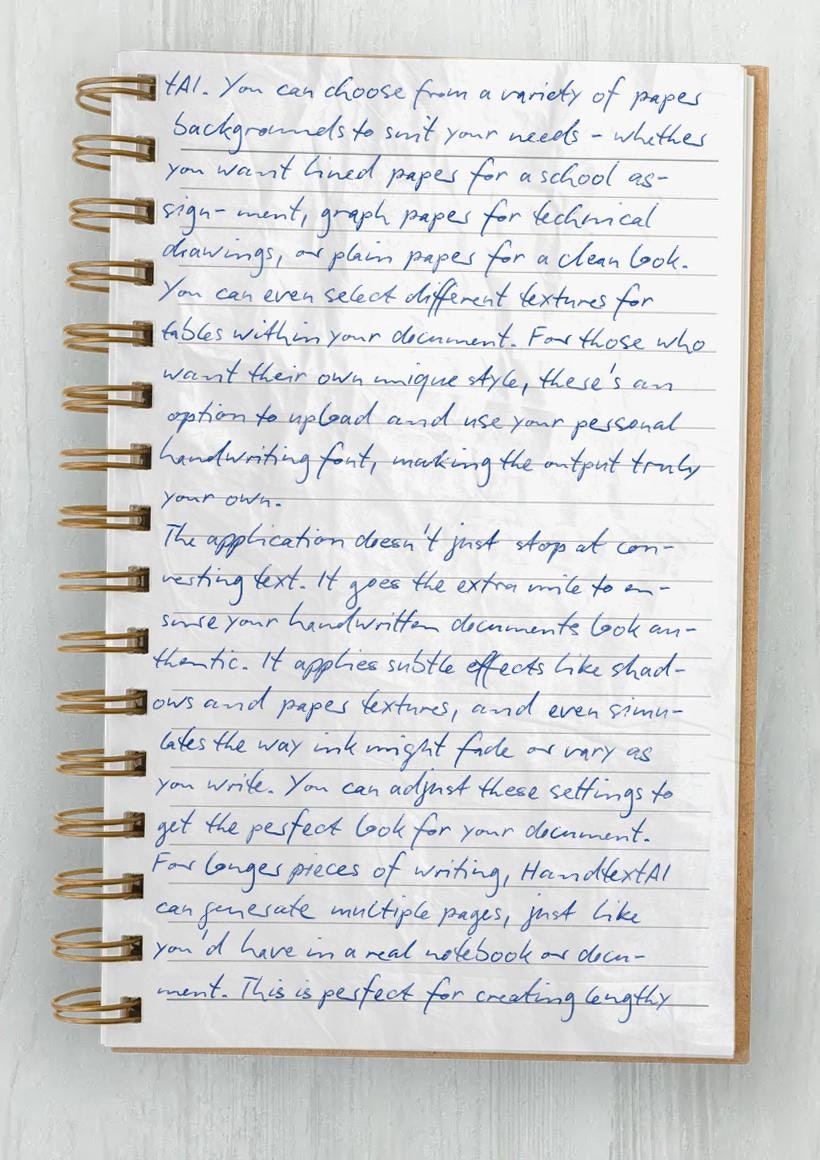 tAI. You can choose from a variety of paper
backgrounds to suit your needs - whether
you want lined paper for a school as-
sign- ment, graph paper for technical
drawings, or plain paper for a clean look.
You can even select different textures for
tables within your document. For those who
want their own unique style, there's an
option to upload and use your personal
handwriting font, making the output truly
your own.
The application doesn't just stop at con-
verting text. It goes the extra mile to en-
sure your handwritten documents look au-
thentic. It applies subtle effects like shad-
ows and paper textures, and even simu-
lates the way ink might fade or vary as
you write. You can adjust these settings to
get the perfect look for your document.
For longer pieces of writing, HandtextAI
can generate multiple pages, just like
you'd have in a real notebook or docu-
ment. This is perfect for creating lengthy